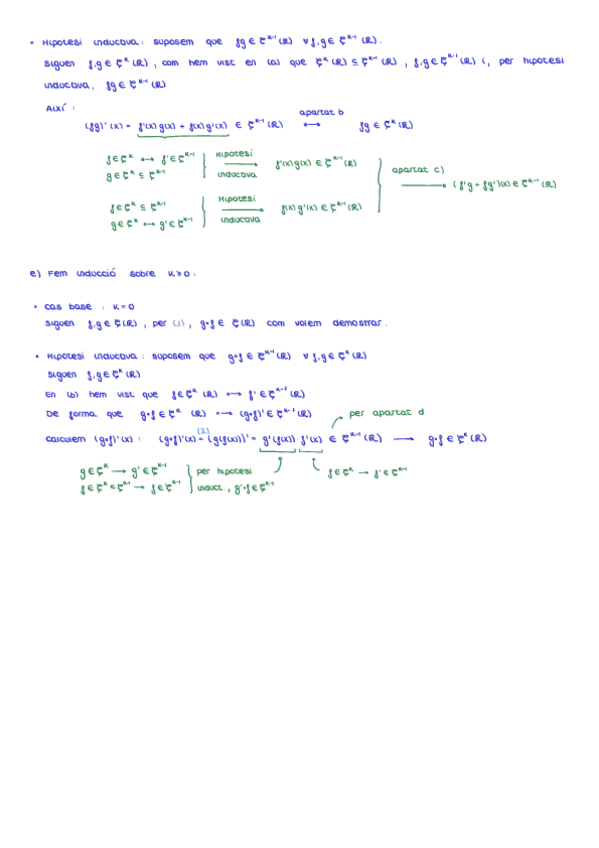 • Hipòtesi inductiva: suposem que fg ∈ C^{k-1}(R) ∀ f,g ∈ C^{k-1}(R).
Siguen f,g ∈ C^k(R), com hem vist en (a) que C^k(R) ⊆ C^{k-1}(R), f,g ∈ C^{k-1}(R) i, per hipòtesi
inductiva, fg ∈ C^{k-1}(R)
Així:
apartat b
(fg)'(x) = f'(x)g(x) + f(x)g'(x) ∈ C^{k-1}(R) ⟷ fg ∈ C^k(R)
f ∈ C^k ⟷ f' ∈ C^{k-1}
g ∈ C^k ⊆ C^{k-1}
Hipòtesi
inductiva
f'(x)g(x) ∈ C^{k-1}(R)
f ∈ C^k ⊆ C^{k-1}
g ∈ C^k ⟷ g' ∈ C^{k-1}
Hipòtesi
inductiva
f(x)g'(x) ∈ C^{k-1}(R)
apartat c)
⟶ (f'g + fg')(x) ∈ C^{k-1}(R)
e) Fem inducció sobre k ≥ 0:
• Cas base: k = 0
Siguen f,g ∈ C(R), per (1), g∘f ∈ C(R) com volem demostrar.
• Hipòtesi inductiva: suposem que g∘f ∈ C^{k-1}(R) ∀ f,g ∈ C^k(R)
Siguen f,g ∈ C^k(R)
En (b) hem vist que f ∈ C^k(R) ⟷ f' ∈ C^{k-1}(R)
De forma que g∘f ∈ C^k(R) ⟷ (g∘f)' ∈ C^{k-1}(R)
per apartat d
(2)
Calculem (g∘f)'(x): (g∘f)'(x) = (g(f(x)))' = g'(f(x))·f'(x) ∈ C^{k-1}(R) ⟶ g∘f ∈ C^k(R)
g ∈ C^k ⟶ g' ∈ C^{k-1}
f ∈ C^k ∈ C^{k-1} → f ∈ C^{k-1}
per hipòtesi
induct., g'∘f ∈ C^{k-1}
f ∈ C^k → f' ∈ C^{k-1}